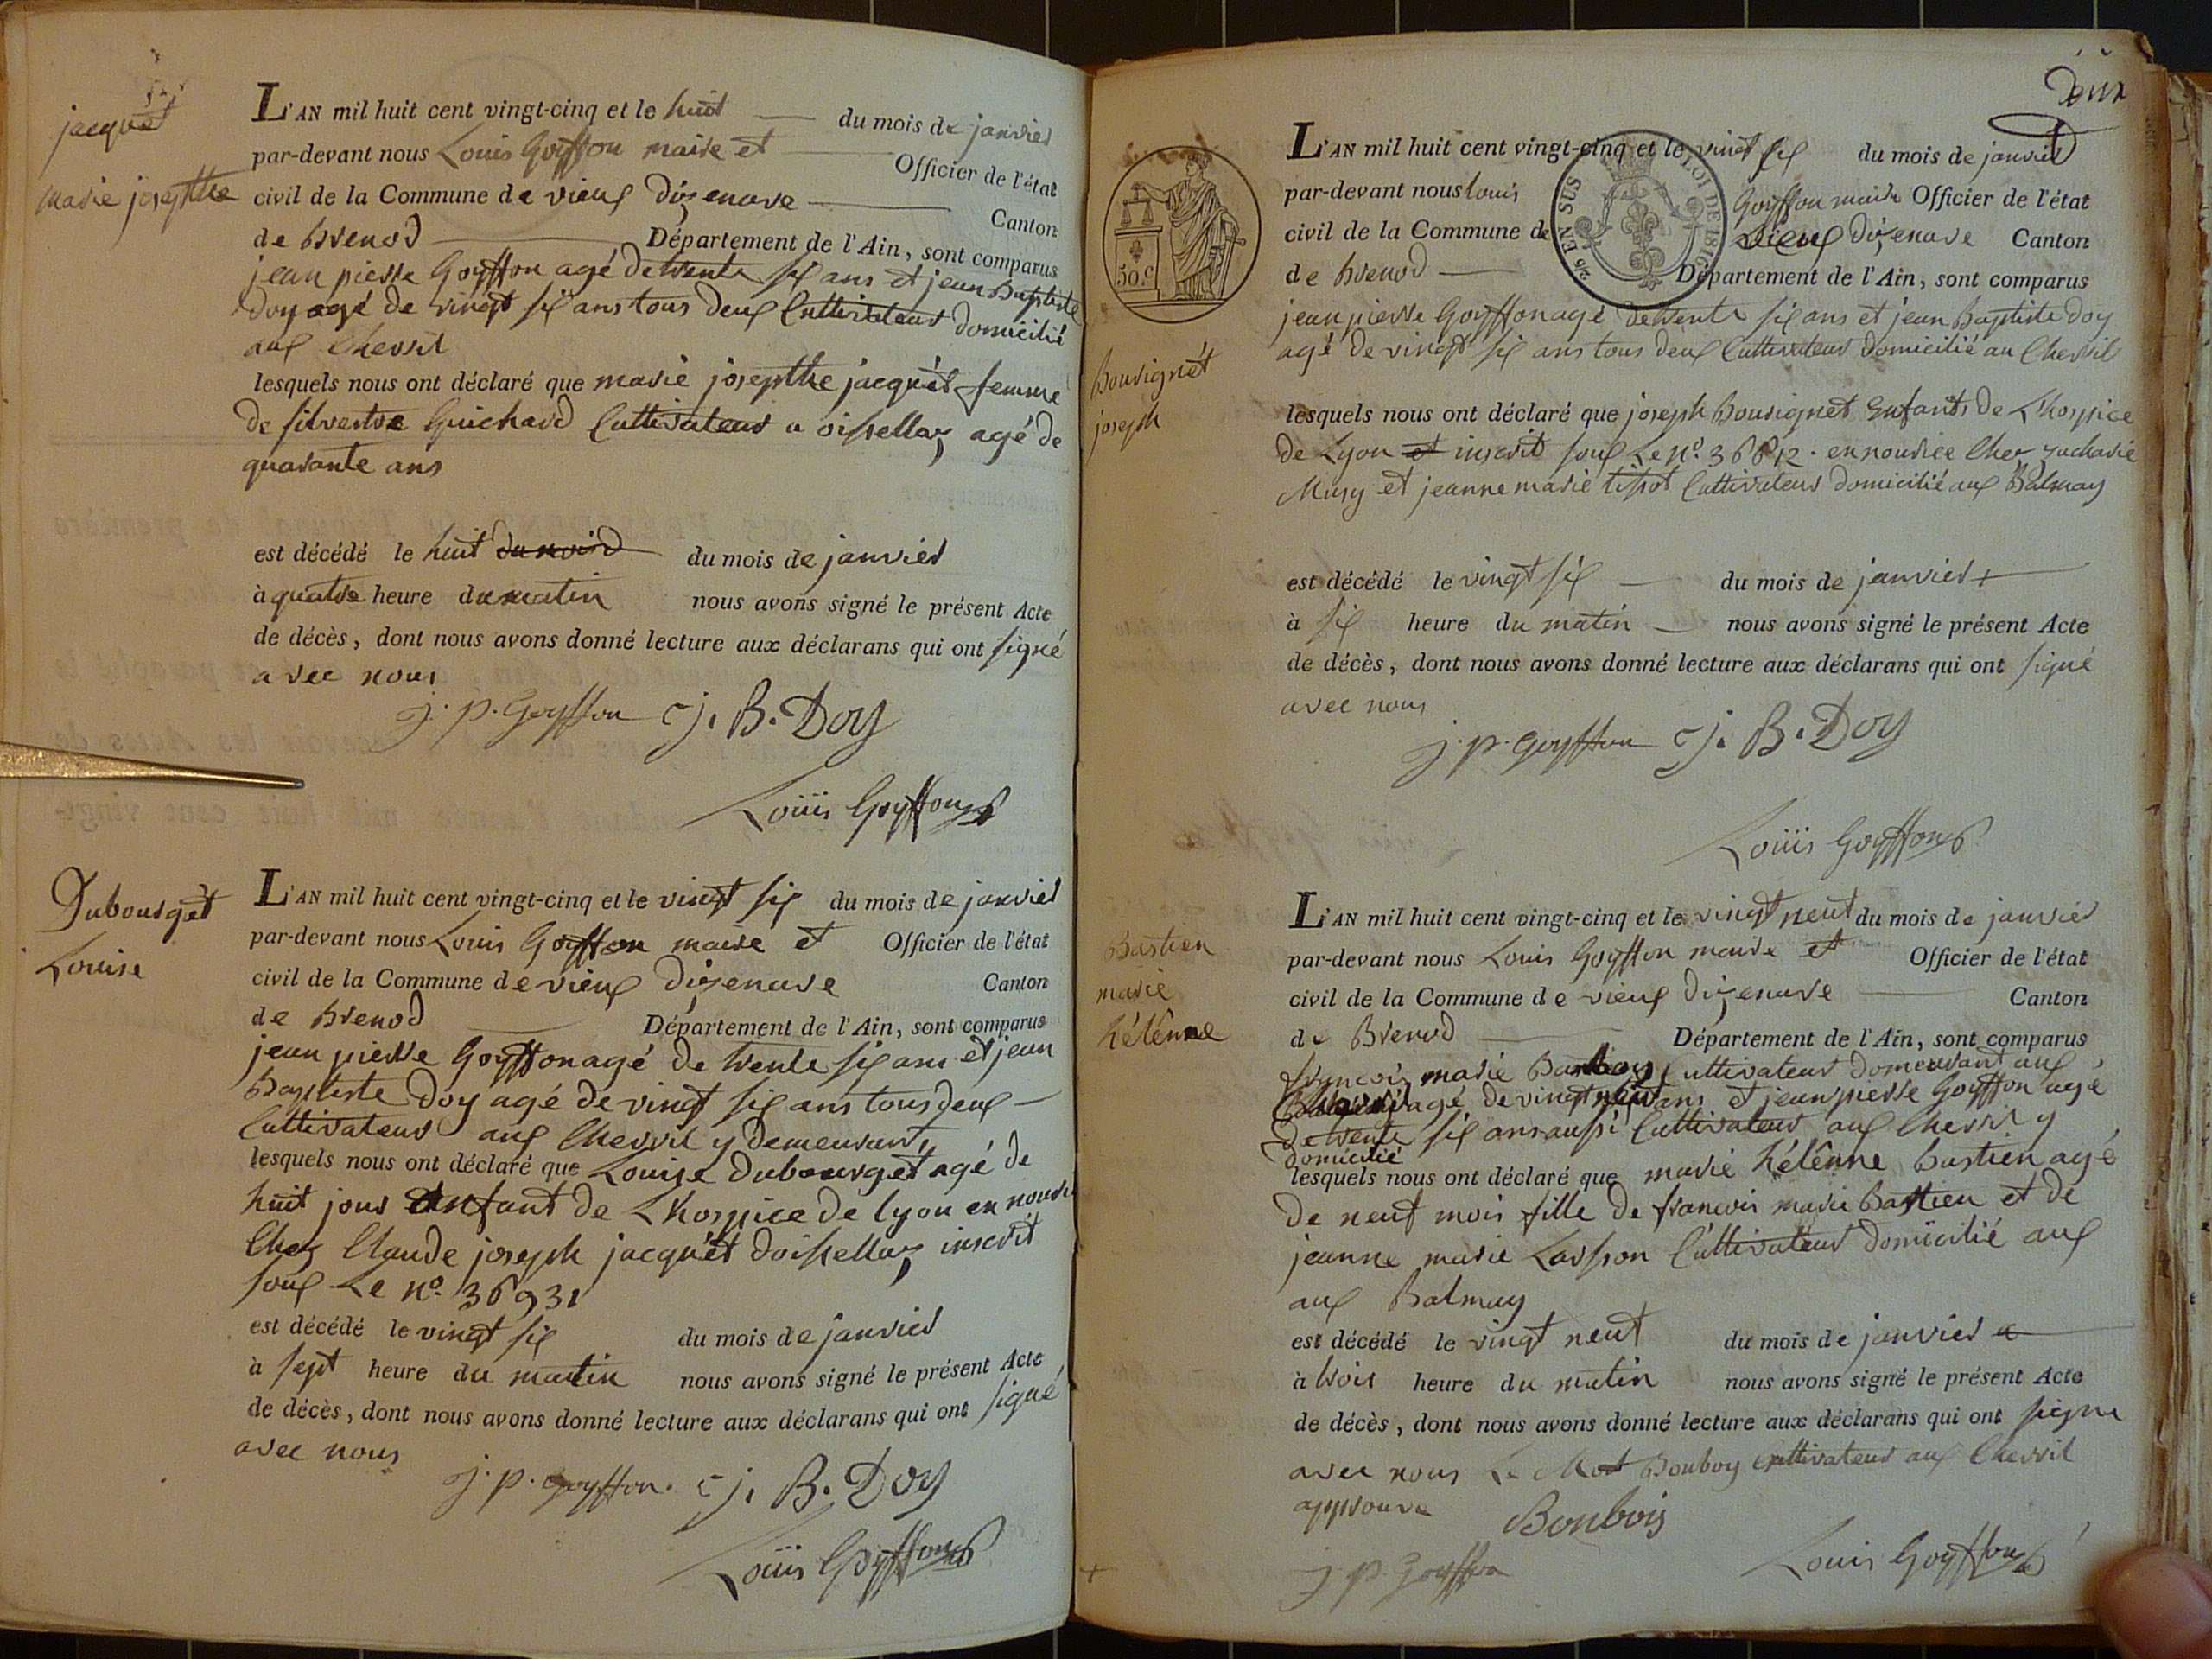 jacquet
marie josepthe
L'AN mil huit cent vingt-cinq et le huit du mois de janvier
par-devant nous Louis Goyffon maire et Officier de l'état
civil de la Commune de vieux dizenave Canton
de brenod Département de l'Ain, sont comparus
jean pierre Goyffon agé de trente six ans et jean Baptiste
doy agé de vingt six ans tous deux Cultivateur domicilié
aux Chevril
lesquels nous ont déclaré que marie josepthe jacquet femme
de silvestre Guichard Cultivateur a oissellaz agé de
quarante ans
est décédé le huit du mois de janvier
à quatre heure du matin nous avons signé le présent Acte
de décès, dont nous avons donné lecture aux déclarans qui ont signé
avec nous
j. p. Goyffon j. B. Doy
Louis Goyffon
Dubourget
Louise
L'AN mil huit cent vingt-cinq et le vingt six du mois de janvier
par-devant nous Louis Goyffon maire et Officier de l'état
civil de la Commune de vieux dizenave Canton
de Brenod Département de l'Ain, sont comparus
jean pierre Goyffon agé de trente six ans et jean
Baptiste doy agé de vingt six ans tous deux
Cultivateur aux Chevril y demeurant
lesquels nous ont déclaré que Louise dubourget agé de
huit jour Enfant de Lhospice de lyon en nourice
Chez Claude joseph jacquet doissellaz inscrit
soux Le n° 36931
est décédé le vingt six du mois de janvier
à sept heure du matin nous avons signé le présent Acte
de décès, dont nous avons donné lecture aux déclarans qui ont signé
avec nous
j. p. Goyffon. j. B. Doy
Louis Goyffon
deux
50.c
2/6 EN SUS
LOI DE 1816
Bourignét
joseph
L'AN mil huit cent vingt-cinq et le vingt six du mois de janvier
par-devant nous louis Goyffon maire Officier de l'état
civil de la Commune de vieux dizenave Canton
de brenod Département de l'Ain, sont comparus
jean pierre Goyffon agé de trente six ans et jean Baptiste doy
agé de vingt six ans tous deux Cultivateur domicilié au Chevril
lesquels nous ont déclaré que joseph bourignet Enfants de Lhospice
de Lyon et inscrit soux Le n° 36812. en nourice Chez zacharie
Musy et jeanne marie tissot Cultivateur domicilié aux Balmay
est décédé le vingt six du mois de janvier
à six heure du matin nous avons signé le présent Acte
de décès, dont nous avons donné lecture aux déclarans qui ont signé
avec nous
j. p. Goyffon j. B. Doy
Louis Goyffon
Bastien
marie
hélênne
L'AN mil huit cent vingt-cinq et le vingt neuf du mois de janvier
par-devant nous Louis Goyffon maire et Officier de l'état
civil de la Commune de vieux dizenave Canton
de Brenod Département de l'Ain, sont comparus
francois marie Cultivateur demeurant aux
agé de vingt ans et jean pierre Goyffon agé
de trente six ans aussi Cultivateur aux Chevril y
domicilié
lesquels nous ont déclaré que marie hélênne bastien agé
de neuf mois fille de francois marie Bastien et de
jeanne marie Lasson Cultivateur domicilié aux
aux Balmay
est décédé le vingt neuf du mois de janvier
à trois heure du matin nous avons signé le présent Acte
de décès, dont nous avons donné lecture aux déclarans qui ont signe
avec nous Le Mot Bonboy Cultivateur aux Chevril
approuve
Bonbois
j p. Goyffon Louis Goyffon